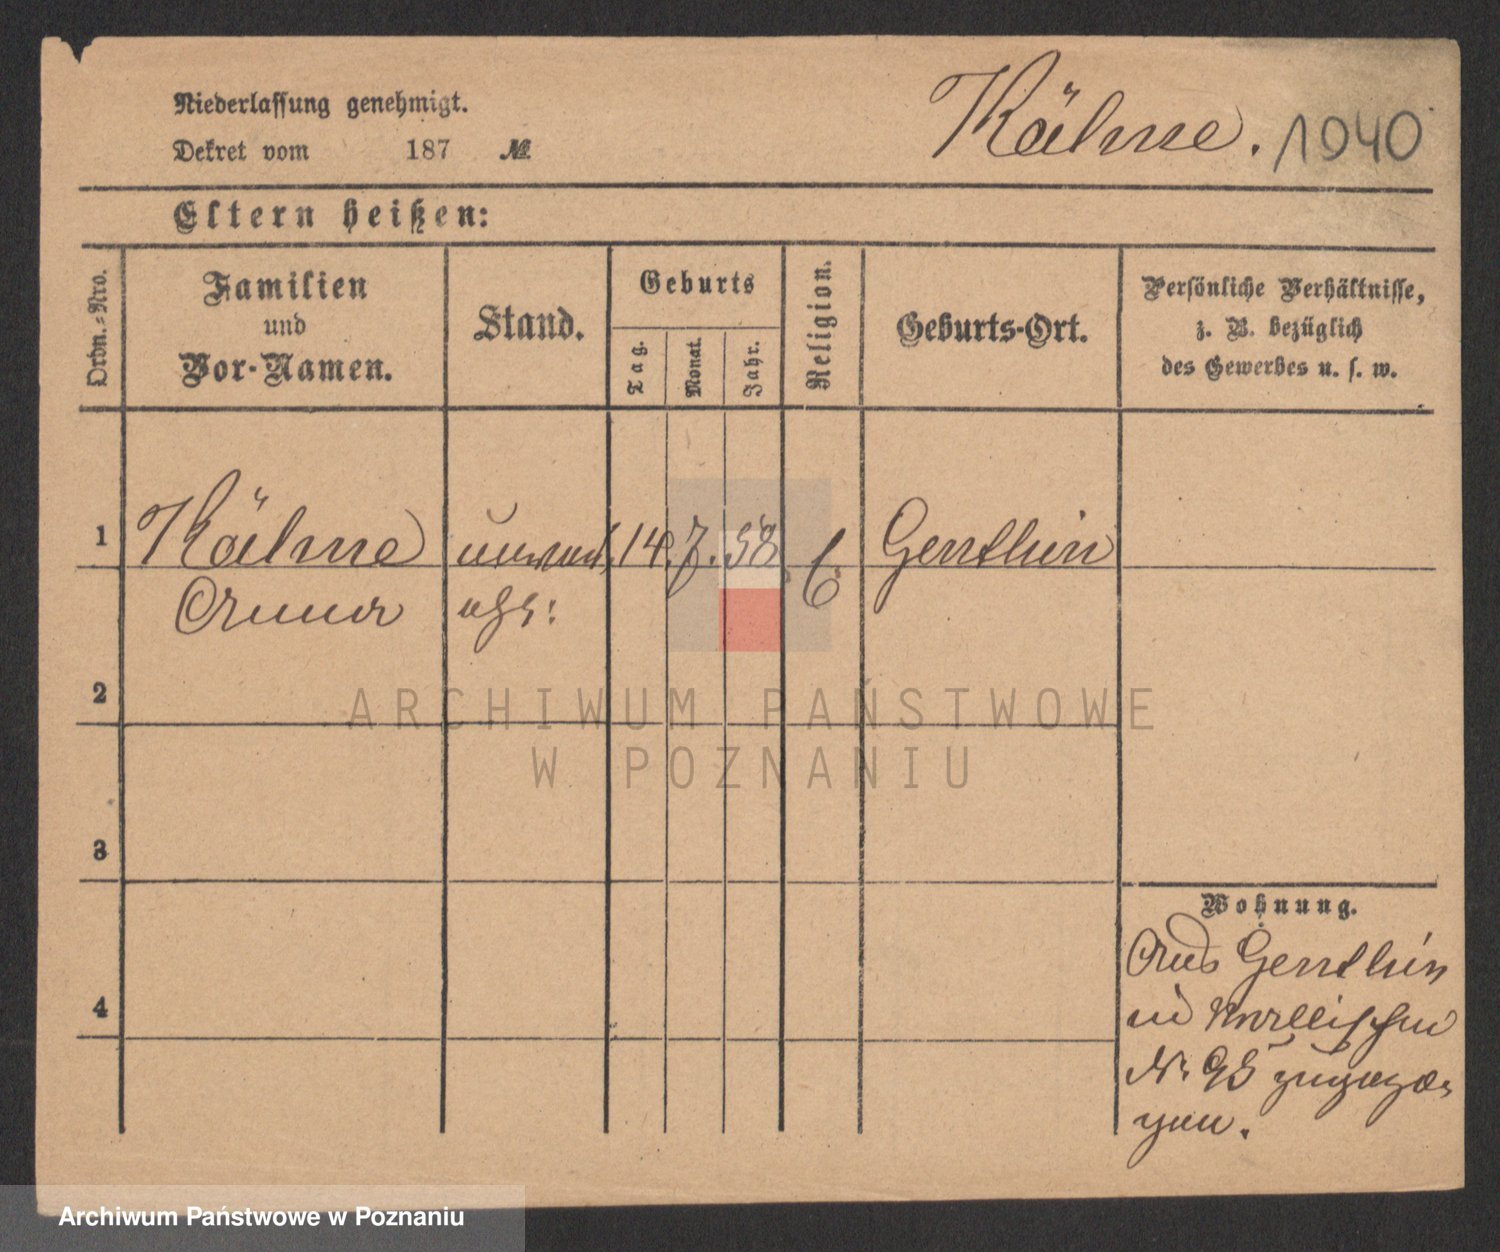 Niederlassung genehmigt.
Dekret vom 187 №
Kähne. 1940
Eltern heißen:
Ordn.-Nro.
Familien
und
Vor-Namen.
Stand.
Geburts
Tag.
Monat.
Jahr.
Religion.
Geburts-Ort.
Persönliche Verhältnisse,
z. B. bezüglich
des Gewerbes u. s. w.
1 Kähne 14. 7. 58. Genthin
Anna
2
3
4
Wohnung.
Aus Genthin
Nr. 95 zugezo-
gen.
ARCHIWUM PAŃSTWOWE
W POZNANIU
Archiwum Państwowe w Poznaniu